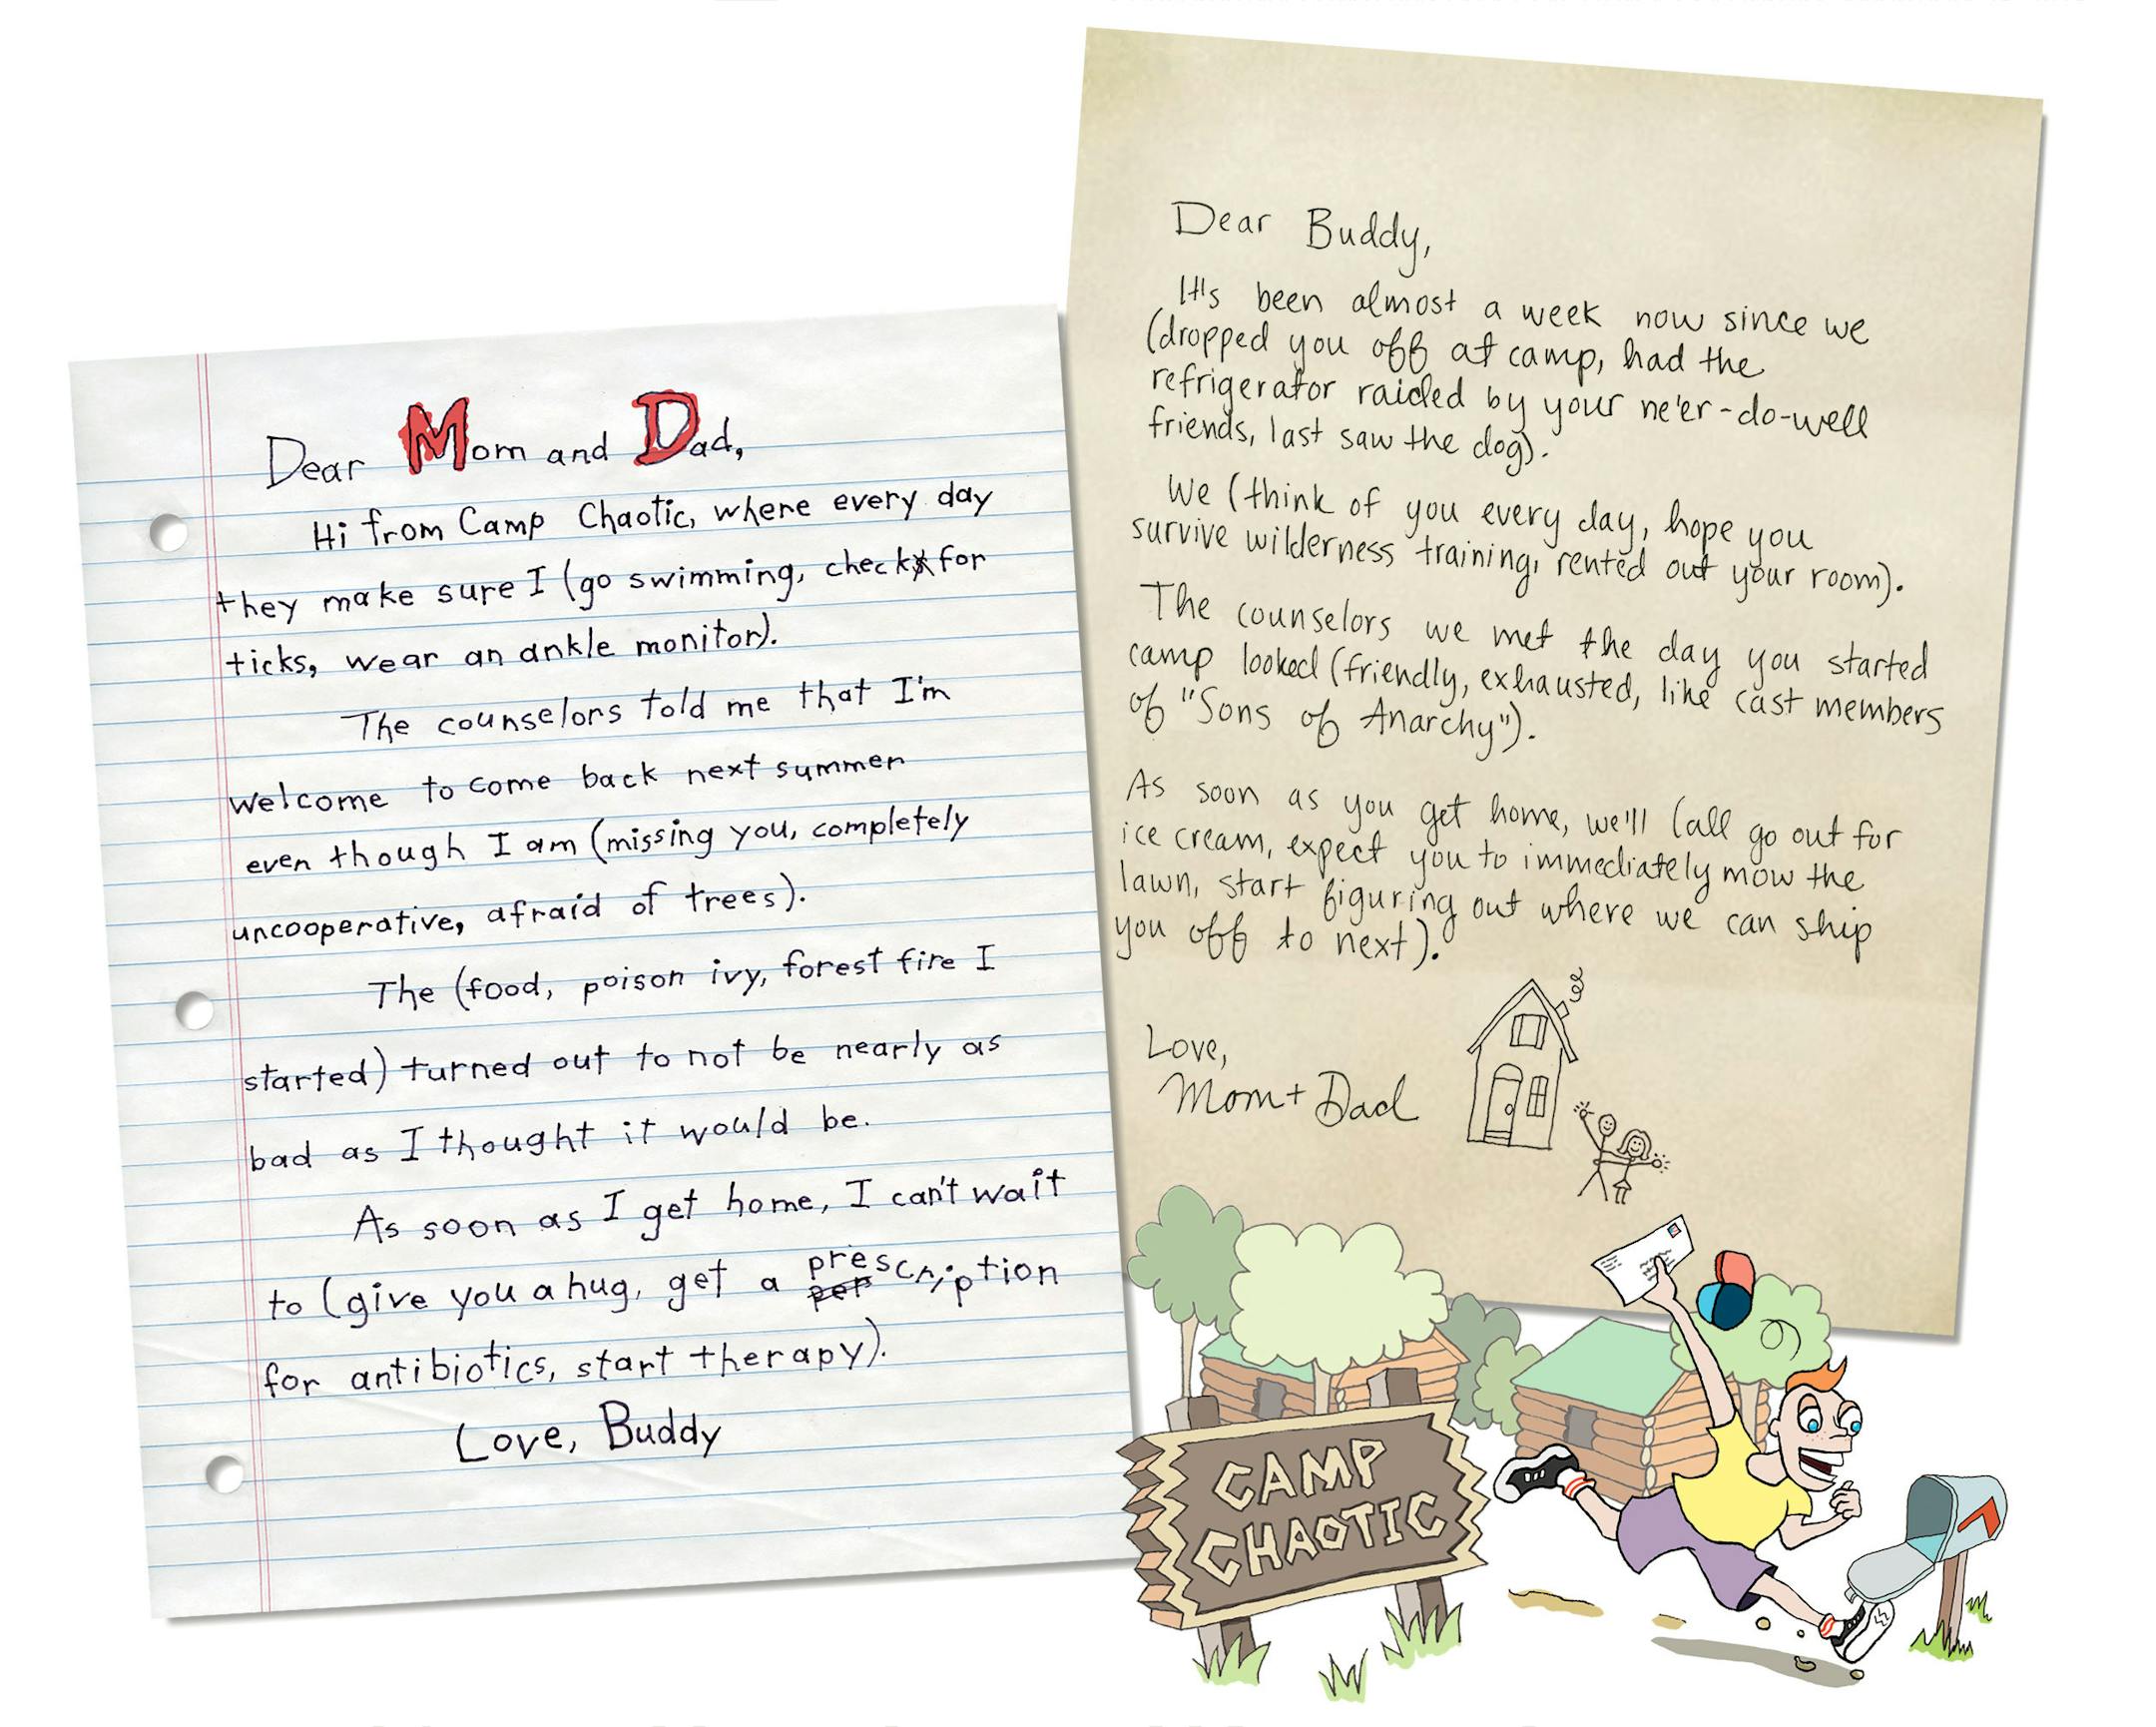 Dear Mom and Dad,
Hi from Camp Chaotic, where every day
they make sure I (go swimming, check for
ticks, wear an ankle monitor).
The counselors told me that I'm
welcome to come back next summer
even though I am (missing you, completely
uncooperative, afraid of trees).
The (food, poison ivy, forest fire I
started) turned out to not be nearly as
bad as I thought it would be.
As soon as I get home, I can't wait
to (give you a hug, get a prescription
for antibiotics, start therapy).
Love, Buddy
Dear Buddy,
It's been almost a week now since we
(dropped you off at camp, had the
refrigerator raided by your ne'er-do-well
friends, last saw the dog).
We (think of you every day, hope you
survive wilderness training, rented out your room).
The counselors we met the day you started
camp looked (friendly, exhausted, like cast members
of "Sons of Anarchy").
As soon as you get home, we'll (all go out for
ice cream, expect you to immediately mow the
lawn, start figuring out where we can ship
you off to next).
Love,
Mom + Dad
CAMP
CHAOTIC